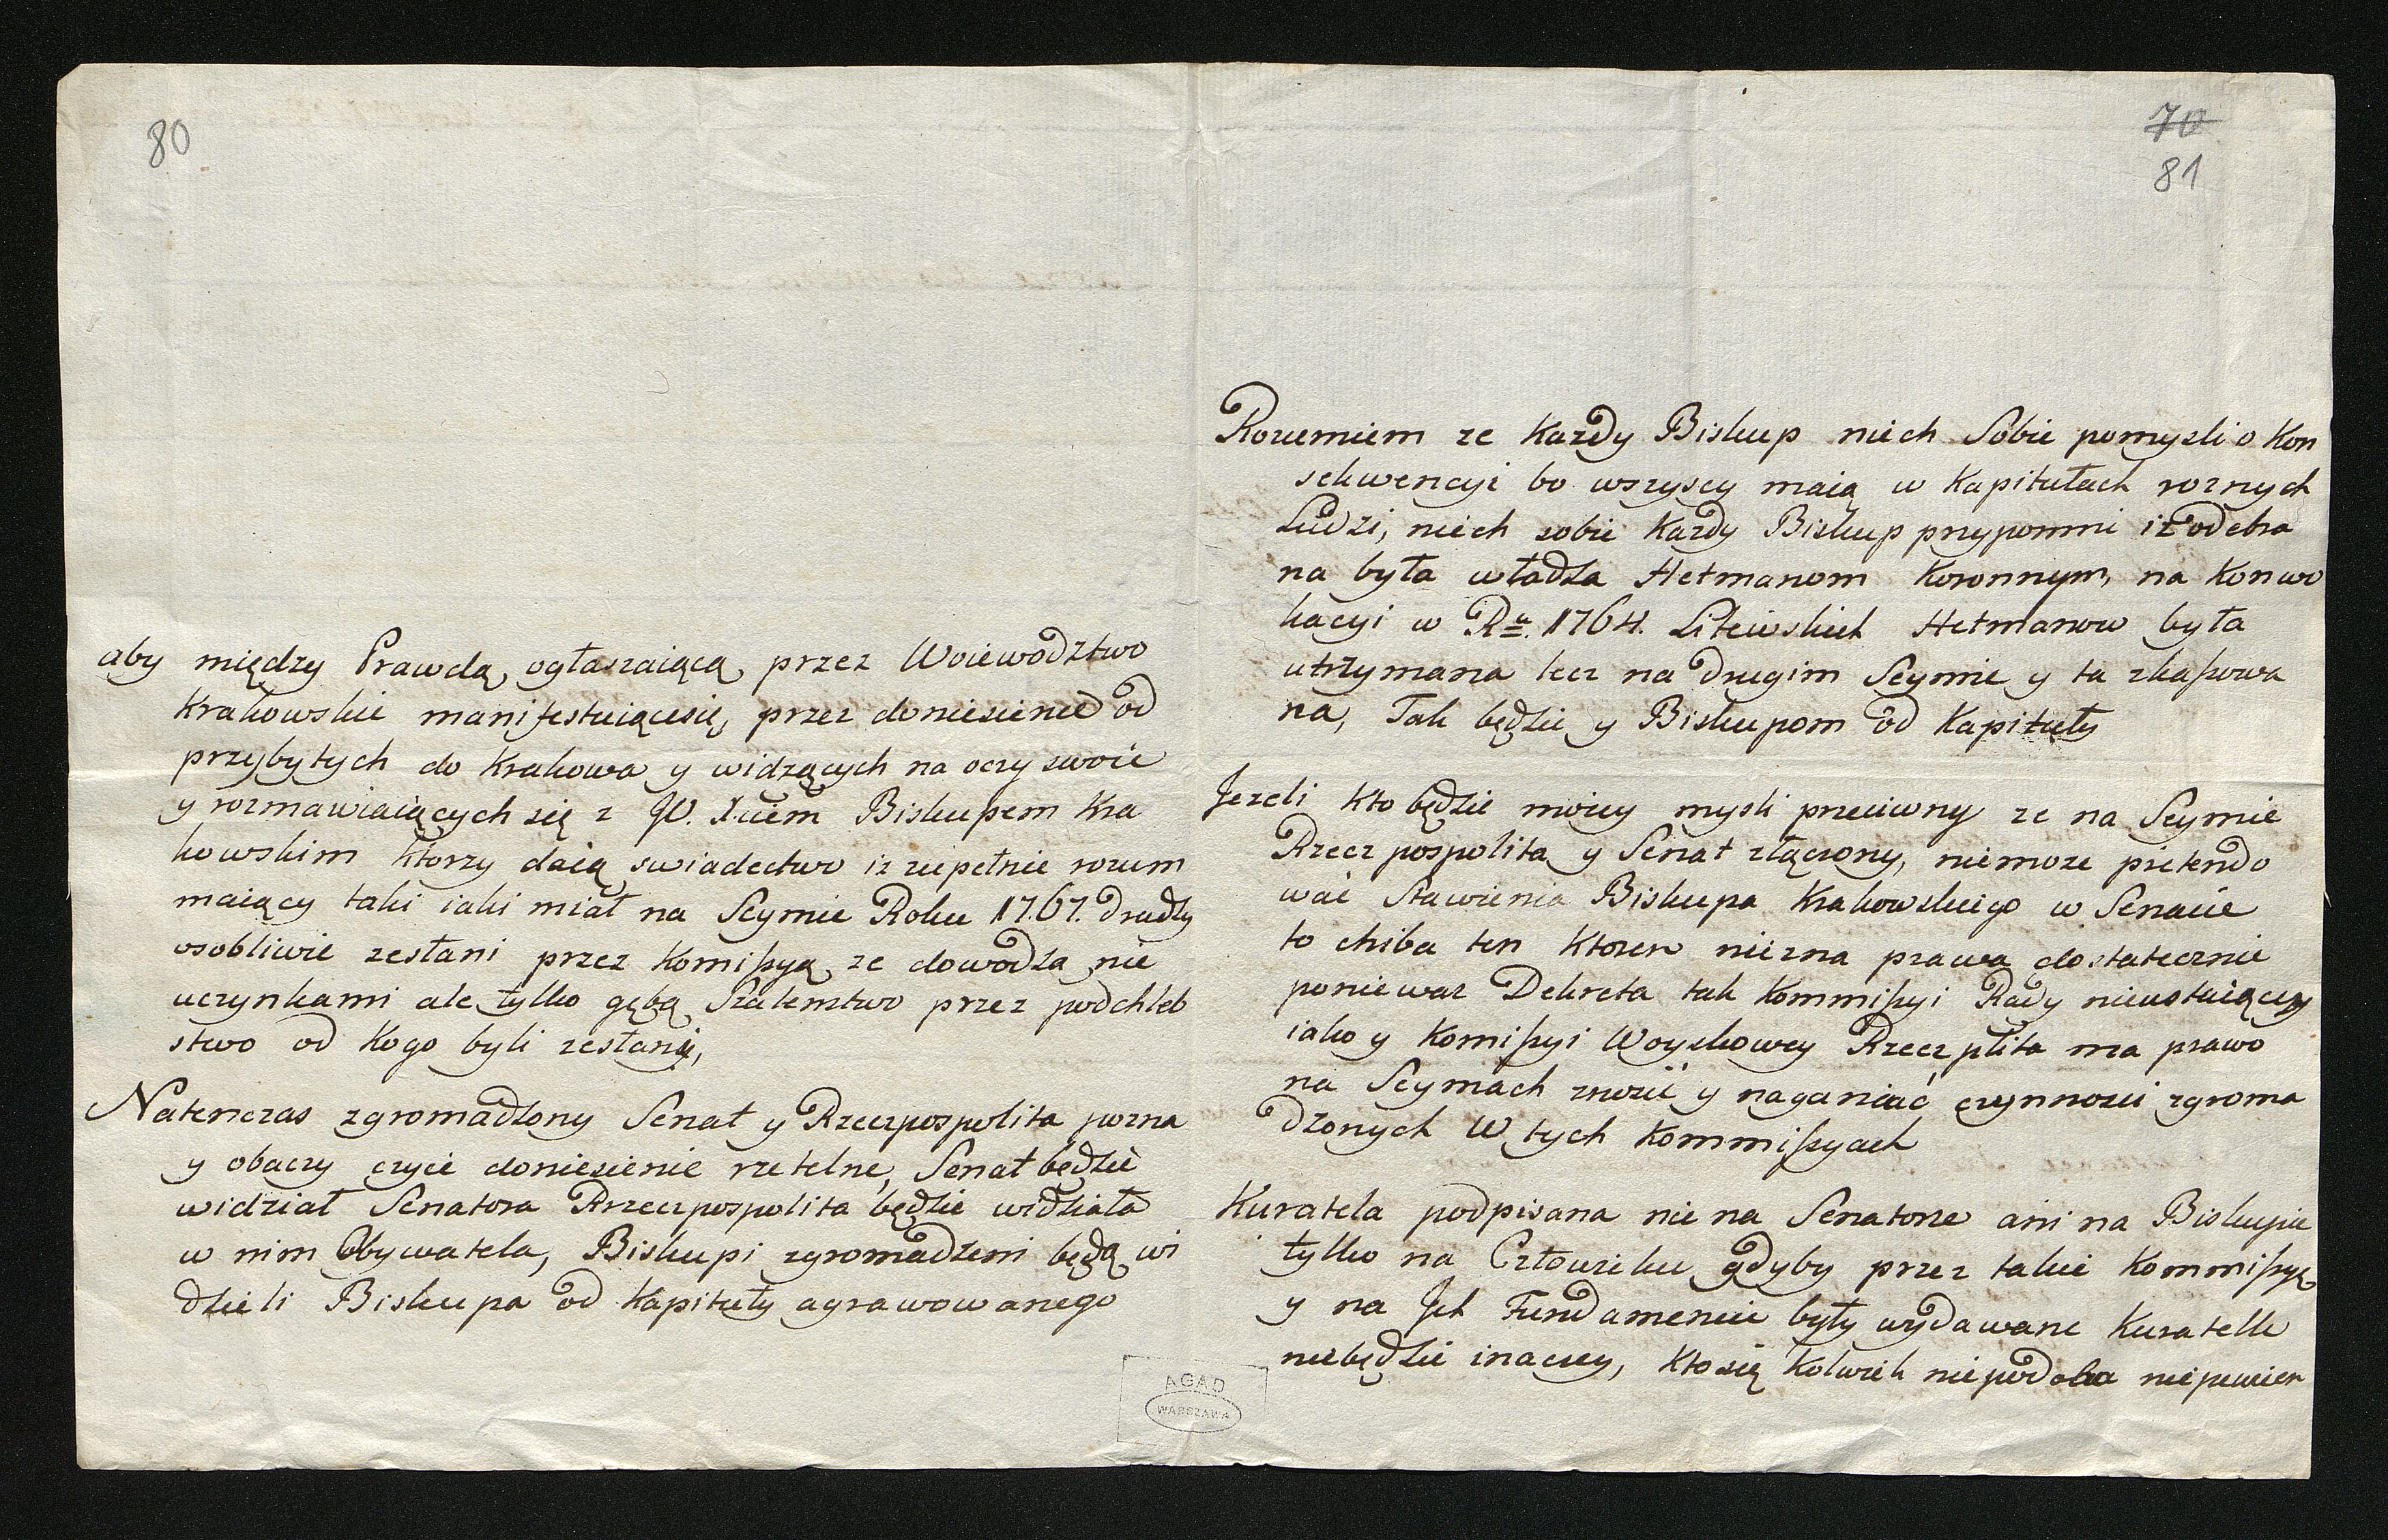 80
aby między Prawdą ogłaszaiącą przez Woiewodztwo
Krakowskie manifestuiącesię, przez doniesienie od
przybytych do Krakowa y widzących na oczy swoie
y rozmawiaiących się z JW. Xciem Biskupem Kra
kowskim ktorzy daią swiadectwo iz zupełnie rozum
maiący taki iaki miał na Seymie Roku 1767. drudzy
osobliwie zesłani przez Komißyą ze dowodza nie
uczynkami ale tylko gębą Szalenstwo przez podchleb
stwo od Kogo byli zesłani,
Natenczas zgromadzony Senat y Rzeczpospolita pozna
y obaczy czyie doniesienie rzetelne, Senat będzie
widział Senatora Rzeczpospolita będzie widziała
w nim Obywatela, Biskupi zgromadzeni będą wi
dzieli Biskupa od Kapituły agrawowanego
AGAD
WARSZAWA
70
81
Rozumiem ze Kazdy Biskup niech Sobie pomysli o Kon
sekwencyi bo wszyscy maią w Kapitułach roznych
Ludzi, niech sobie Kazdy Biskup przypomni iż odebra
na była władza Hetmanom Koronnym, na Konwo
kacyi w Ru. 1764. Litewskich Hetmanow była
utrzymana lecz na drugim Seymie y ta zkaßowa
na, Tak będzie y Biskupom od Kapituły
Jezeli kto będzie moiey mysli przeciwny ze na Seymie
Rzecz pospolita y Senat złączony, niemoze pretendo
wać Stawienia Biskupa Krakowskiego w Senacie
to chiba ten Ktoren niezna prawa dostatecznie
poniewaz Dekreta tak Kommißyi Rady nieustaiącey
iako y Komißyi Woyskowey Rzeczplita ma prawo
na Seymach znozić y naganiać czynnozci zgroma
dzonych W tych Kommißyach
Kuratela podpisana nie na Senatorze ani na Biskupie
tylko na Człowieku gdyby przez takie Kommißye
y na Jch Fundamencie były wydawane Kuratelle
niebędzie inaczey, Kto się Kolwiek niepodoba niepewien